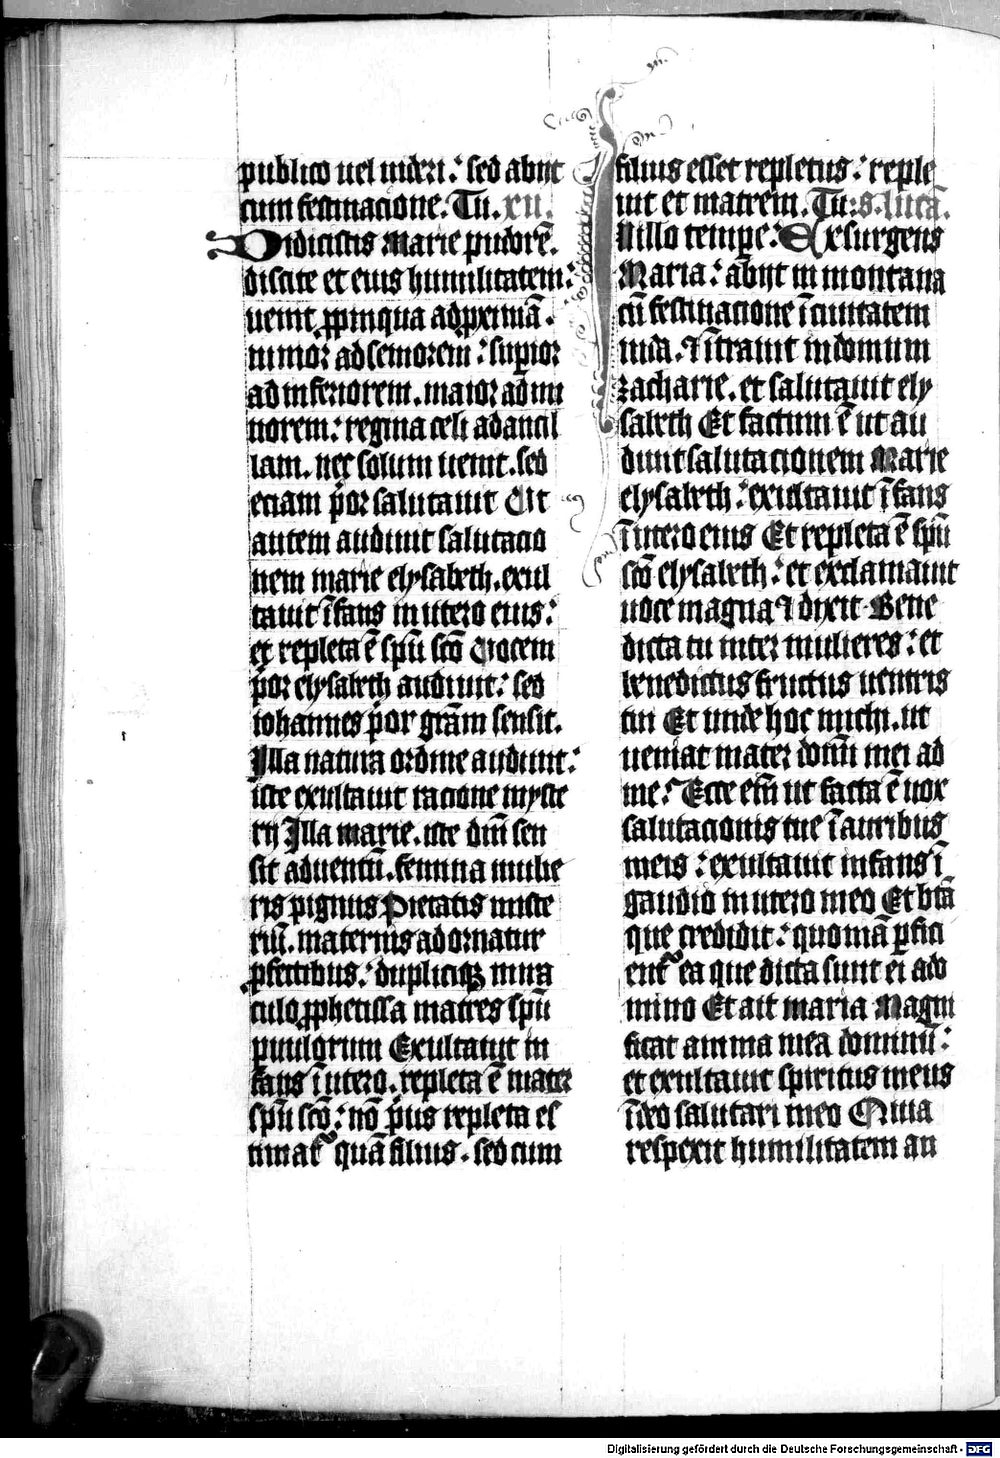 publico uel uideri: sed abijt
cum festinacione. Tu. xii.
Didicistis Marie pudorē.
discite et eius humilitatem:
uenit ꝓpinqua ad ꝓximā.
iunior ad seniorem: supior
ad inferiorem. maior ad mi
norem: regina celi ad ancil
lam. nec solum uenit. sed
eciam p̄or salutauit Vt
autem audiuit salutacio
nem marie elysabeth. exul
tauit īfans in utero eius:
et repleta ē spū scō Vocem
p̄or elysabeth audiuit: sed
iohannes p̄or grām sensit.
Illa natura ordine audiuit:
iste exultauit racione myste
rij Illa marie. iste dm̄ sen
sit aduentū. femina mulie
ris pignus Pietatis miste
riū. maternis adornatur
ꝓfectibus: dupliciqꝫ mira
culo ꝓphetissa matres spū
puulorum Exultauit in
fans ī utero. repleta ē mater
spū scō: nō p̄us repleta es
timat᷑ quā filius. sed cum
filius esset repletus: reple
uit et matrem. Tu: s. lucā.
In illo tempe: Exsurgens
Maria: abijt in montana
cū festinacione ī ciuitatem
iuda. ⁊ ītrauit in domum
zacharie. et salutauit ely
sabeth Et factum ē ut au
diuit salutacionem Marie
elysabeth: exultauit īfans
ī utero eius Et repleta ē spū
scō elysabeth: et exclamauit
uoce magna ⁊ dixit Bene
dicta tu inter mulieres: et
benedictus fructus uentris
tui Et unde hoc michi. ut
ueniat mater domī mei ad
me: Ecce em̄ ut facta ē uox
salutacionis tue ī auribus
meis: exultauit infans ī
gaudio in utero meo Et btā
que credidit: quoniā ꝑfici
ent᷑ ea que dicta sunt ei a do
mino Et ait maria Magni
ficat anima mea dominū:
et exultauit spiritus meus
ī deo salutari meo Quia
respexit humilitatem an
Digitalisierung gefördert durch die Deutsche Forschungsgemeinschaft - DFG